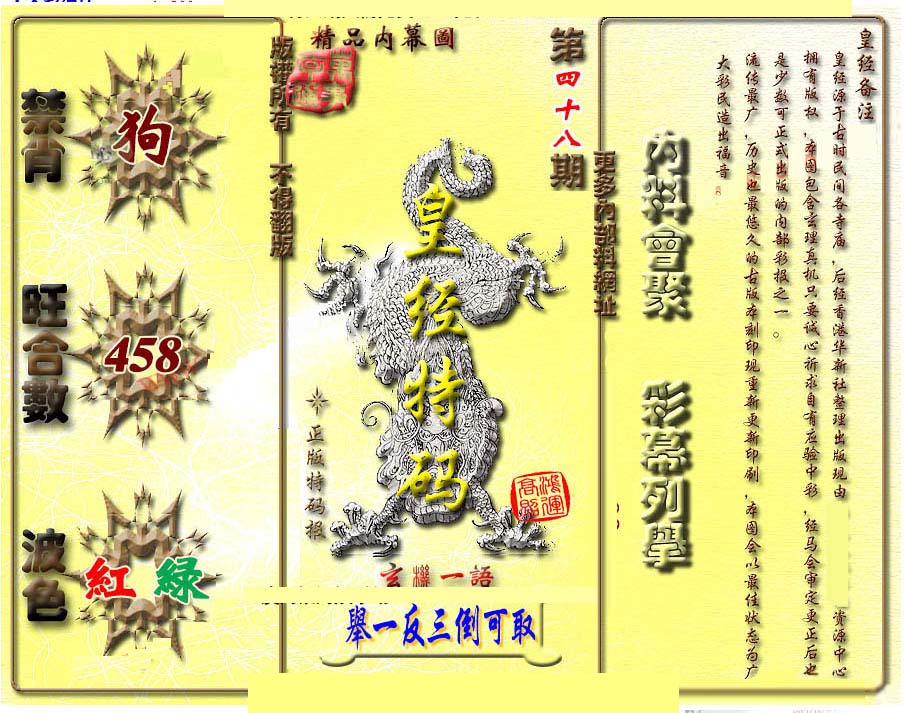 精品內幕圖
第四十八期
版權所有 不得翻版
更多內部料網址
禁肖
狗
旺合數
458
波色
紅 綠
皇经特码
正版特码报
鴻運高照
玄機一語
舉一反三倒可取
內料會聚
彩幕列舉
皇经备注
皇经源于古时民间各寺庙，后经香港华新社整理出版现由 资源中心
拥有版权，本图包含玄理真机只要诚心祈求自有应验中彩，经马会审定更正后也
是少数可正式出版的内部彩报之一。
流传最广，历史也最悠久的古版本刻印现重新更新印刷，本图会以最佳状态为广
大彩民造出福音